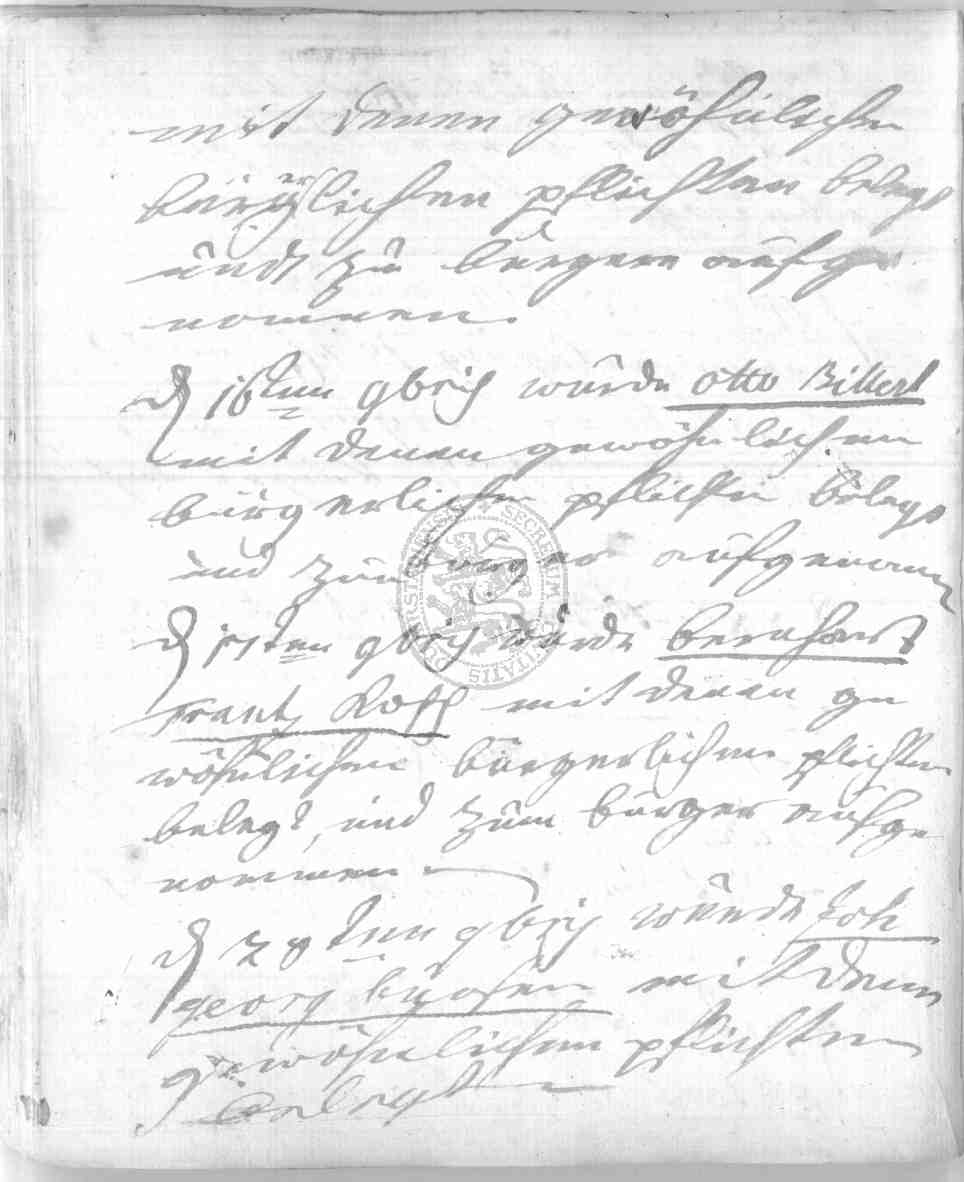 mit denen gewöhnlichen
bürgerlichen pflichten belegt
undt zu bürgern aufge
nommen.
d 16ten 9brich wurde otto Billert
mit denen gewöhnlichen
bürgerlichen pflichten belegt
und zum burger aufgenomm
d ten 9brich wurde bernhart
Frantz Roff mit denen ge
wöhnlichen bürgerlichen pflichten
belegt, und zum bürger aufge
nommen
d 28ten 9brich wurde Joh
georg mit denen
gewöhnlichen pflichten
belegt
SECRETUM CIVITATIS